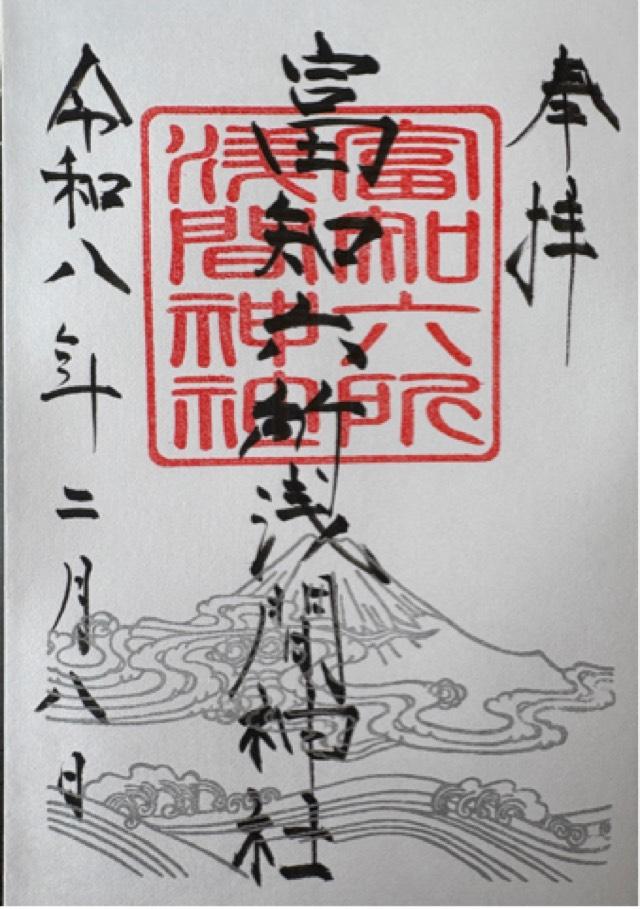 奉拝
富知六所浅間神社
富知六所
浅間神社
令和八年二月八日